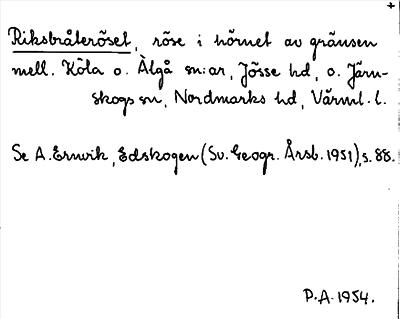 Riksbråteröset, röse i hörnet av gränsen
mell. Köla o. Älgå sn:ar, Jösse hd, o. Järn-
skogs sn, Nordmarks hd, Värml. l.
Se A. Ernvik, Edskogen (Sv. Geogr. Årsb. 1951), s. 88.
P.A. 1954.